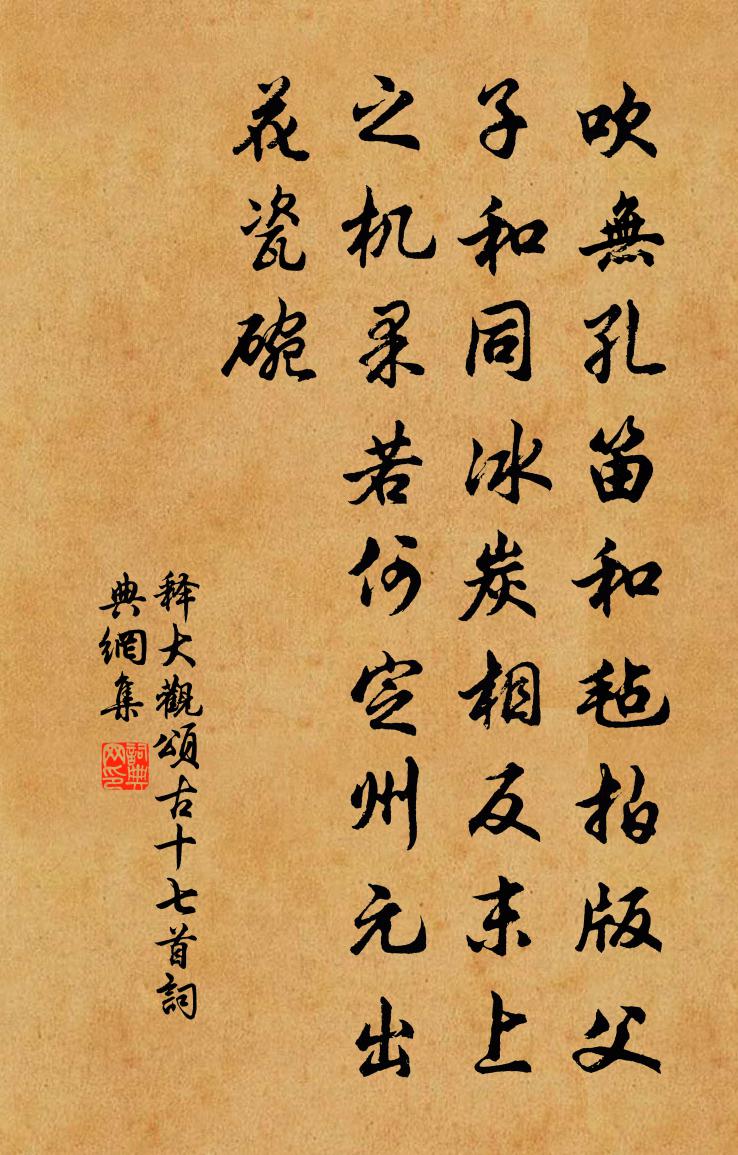 吹無孔笛和毡拍版父
子和同冰炭相反末上
之机果若何定州元出
花瓷碗
释大觀頌古十七首詞
典網集
詞典网印